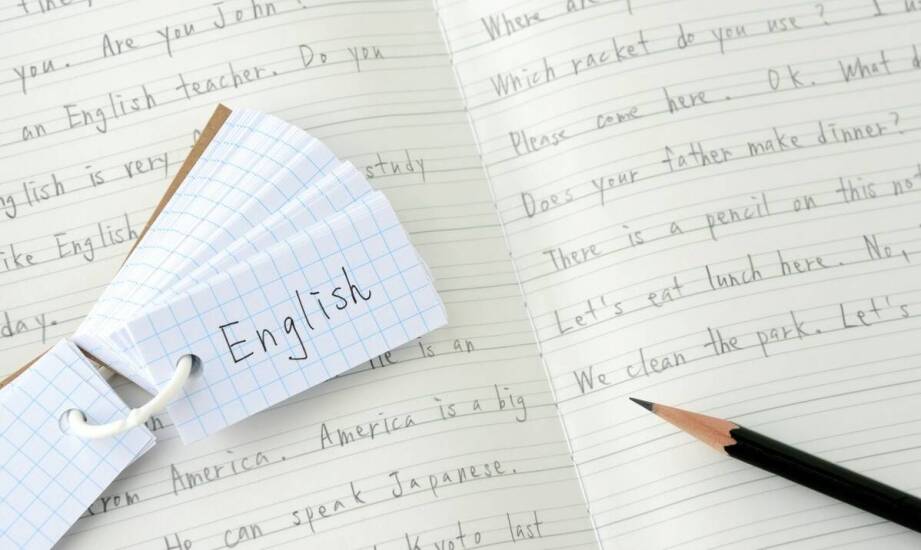 you. Are you John?
an English teacher. Do you
English is very
study
like English
day.
He is an
from America. America is a big
He can speak Japanese.
Kyoto last
English
Where are
Which racket do you use?
Please come here. OK. What
Does your father make dinner?
There is a pencil on this
Let's eat lunch here. No,
We clean the park. Let's